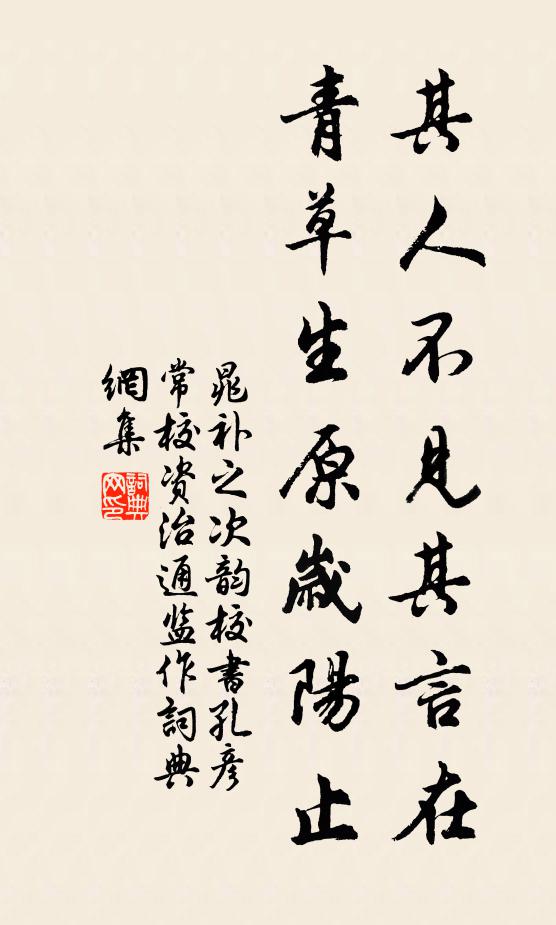 其人不見其言在
青草生原歲陽止
晁补之次韵校書孔彦
常校资治通监作詞典
網集
詞典
网印